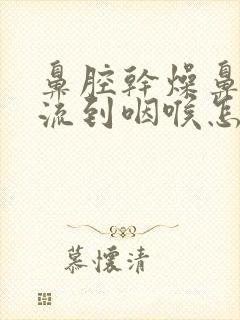 鼻腔幹燥鼻
流到咽喉怎
慕懷清